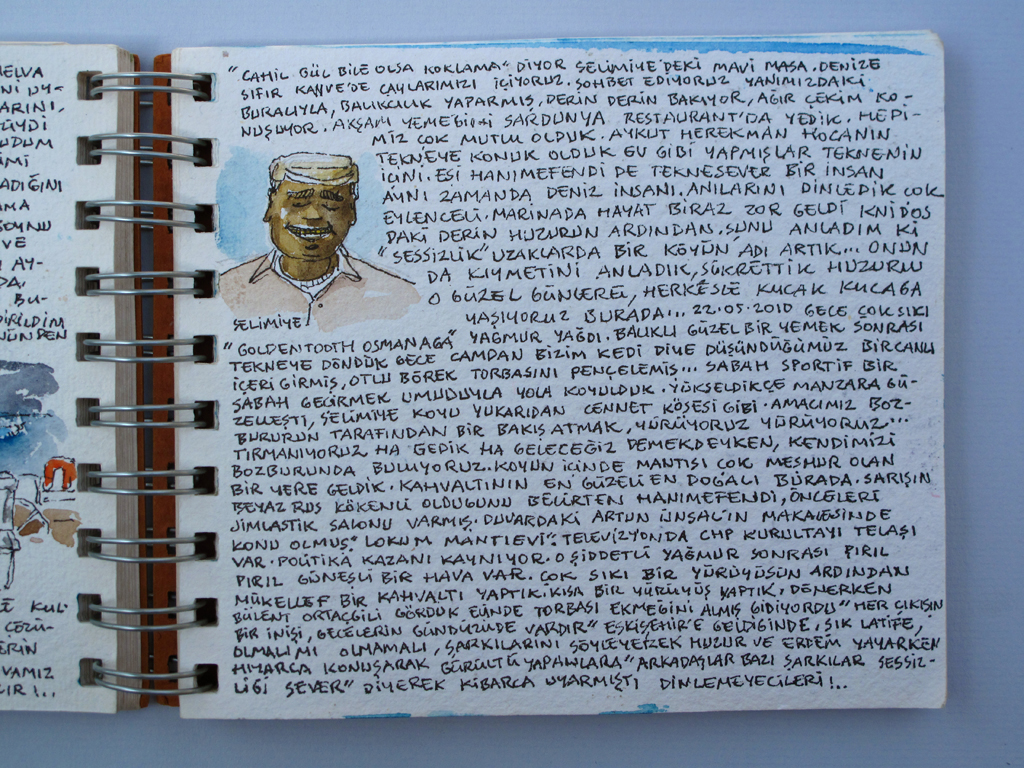 ELVA
ARINI,
ÜYDI
UDUM
IMI
ADIĞINI
AMA
BOYNU
VE
AY-
DA.
BU-
DIRILDIM
NÜNDEN
KUL-
ÇÖZÜ-
ERIN
VAMIZ
"CAHIL GÜL BILE OLSA KOKLAMA" DIYOR SELIMIYE'DEKI MAVI MASA. DENIZE
SIFIR KAHVE'DE ÇAYLARIMIZI IÇIYORUZ. SOHBET EDIYORUZ YANIMIZDAKI
BURALIYLA, BALIKCILIK YAPARMIŞ, DERIN DERIN BAKIYOR, AĞIR ÇEKIM KO-
NUŞUYOR. AKŞAM YEMEĞINI SARDUNYA RESTAURANT'DA YEDIK. HEPI-
MIZ ÇOK MUTLU OLDUK. AYKUT HEREKMAN HOCANIN
TEKNEYE KONUK OLDUK EV GIBI YAPMIŞLAR TEKNENIN
IÇINI. EŞI HANIMEFENDI DE TEKNESEVER BIR INSAN
AYNI ZAMANDA DENIZ INSANI. ANILARINI DINLEDIK ÇOK
EYLENCELI. MARINADA HAYAT BIRAZ ZOR GELDI KNIDOS
DAKI DERIN HUZURUN ARDINDAN. ŞUNU ANLADIM KI
"SESSIZLIK" UZAKLARDA BIR KÖYÜN ADI ARTIK... ONUN
DA KIYMETINI ANLADIK, ŞÜKRETTIK HUZURLU
O GÜZEL GÜNLERE!, HERKESLE KUCAK KUCAĞA
YAŞIYORUZ BURADA... 22.05.2010 GECE ÇOK SIKI
SELIMIYE
"GOLDENTOOTH OSMANAGA" YAĞMUR YAĞDI. BALIKLI GÜZEL BIR YEMEK SONRASI
TEKNEYE DÖNDÜK GECE CAMDAN BIZIM KEDI DIYE DÜŞÜNDÜĞÜMÜZ BIR CANLI
IÇERI GIRMIŞ, OTLU BÖREK TORBASINI PENÇELEMIŞ... SABAH SPORTIF BIR
SABAH GEÇIRMEK UMUDUYLA YOLA KOYULDUK. YÜKSELDIKÇE MANZARA GÜ-
ZELLEŞTI, SELIMIYE KOYU YUKARIDAN CENNET KÖŞESI GIBI. AMACIMIZ BOZ-
BURUN TARAFINDAN BIR BAKIŞ ATMAK, YÜRÜYORUZ YÜRÜYORUZ...
TIRMANIYORUZ HA GEDIK HA GELECEĞIZ DEMEKDEYKEN, KENDIMIZI
BOZBURUNDA BULUYORUZ. KOYÜN IÇINDE MANTISI ÇOK MEŞHUR OLAN
BIR YERE GELDIK. KAHVALTININ EN GÜZELI EN DOĞALI BURADA. SARIŞIN
BEYAZ RUS KÖKENLI OLDUĞUNU BELIRTEN HANIMEFENDI, ÖNCELERI
JIMLASTIK SALONU VARMIŞ. DUVARDAKI ARTUN ÜNSAL'IN MAKALESINDE
KONU OLMUŞ. "LOKUM MANTIEVI". TELEVIZYONDA CHP KURULTAYI TELAŞI
VAR. POLITIKA KAZANI KAYNIYOR. O ŞIDDETLI YAĞMUR SONRASI PIRIL
PIRIL GÜNEŞLI BIR HAVA VAR. ÇOK SIKI BIR YÜRÜYÜŞÜN ARDINDAN
MÜKELLEF BIR KAHVALTI YAPTIK. KISA BIR YÜRÜYÜŞ YAPTIK, DÖNERKEN
BÜLENT ORTAÇGILI GÖRDÜK ELINDE TORBASI EKMEĞINI ALMIŞ GIDIYORDU "HER ÇIKIŞIN
BIR INIŞI, GECELERIN GÜNDÜZÜDE VARDIR" ESKIŞEHIR'E GELDIĞINDE, ŞIK LATIFE,
OLMALIMI OLMAMALI, ŞARKILARINI SÖYLEYEREK HUZUR VE ERDEM YAYARKEN
HIYARCA KONUŞARAK GÜRÜLTÜ YAPANLARA "ARKADAŞLAR BAZI ŞARKILAR SESSIZ-
LIĞI SEVER" DIYEREK KIBARCA UYARMIŞTI DINLEMEYECILERI!..